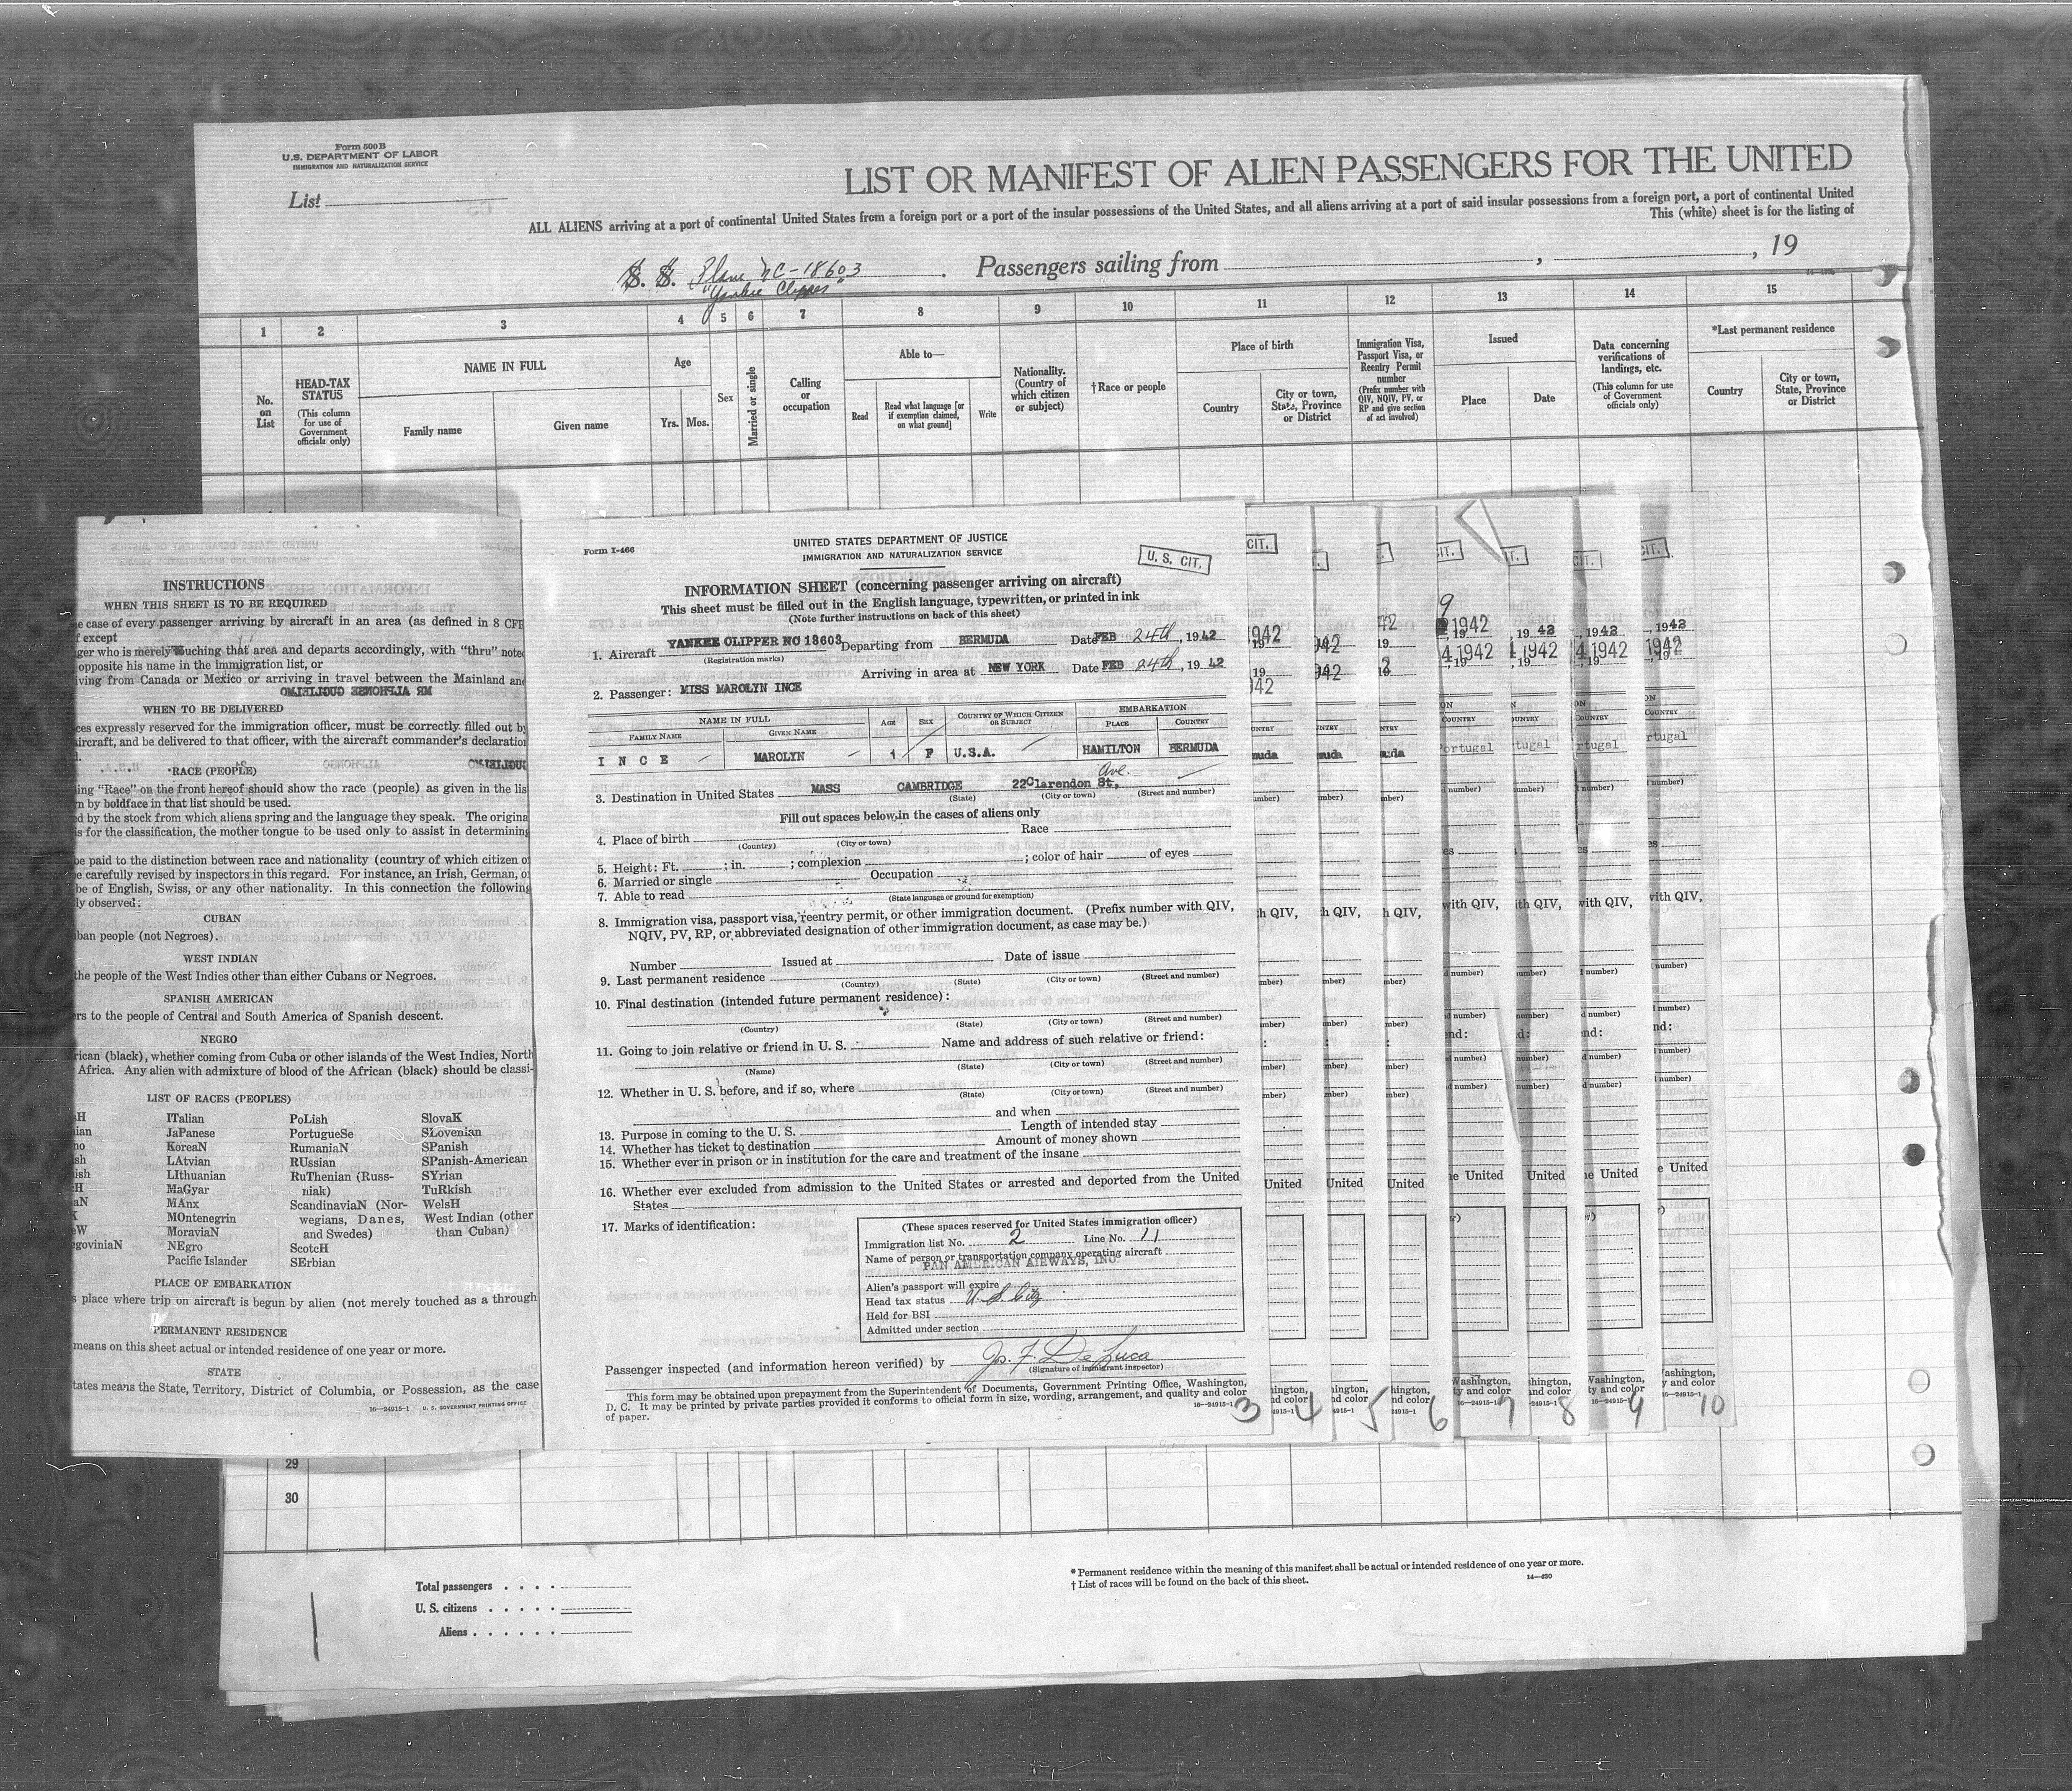 Form 500B
U.S. DEPARTMENT OF LABOR
IMMIGRATION AND NATURALIZATION SERVICE
List
LIST OR MANIFEST OF ALIEN PASSENGERS FOR THE UNITED
ALL ALIENS arriving at a port of continental United States from a foreign port or a port of the insular possessions of the United States, and all aliens arriving at a port of said insular possessions from a foreign port, a port of continental United
This (white) sheet is for the listing of
S. S. Plane NC-18603 . Passengers sailing from , , 19
"Yankee Clipper"
1 2 3 4 5 6 7 8 9 10 11 12 13 14 15
No. on List
HEAD-TAX STATUS (This column for use of Government officials only)
NAME IN FULL
Family name Given name
Age
Yrs. Mos.
Sex
Married or single
Calling or occupation
Able to—
Read
Read what language [or if exemption claimed, on what ground]
Write
Nationality. (Country of which citizen or subject)
†Race or people
Place of birth
Country
City or town, State, Province or District
Immigration Visa, Passport Visa, or Reentry Permit number (Prefix number with QIV, NQIV, PV, or RP and give section of act involved)
Issued
Place Date
Data concerning verifications of landings, etc. (This column for use of Government officials only)
*Last permanent residence
Country
City or town, State, Province or District
INSTRUCTIONS
WHEN THIS SHEET IS TO BE REQUIRED
e case of every passenger arriving by aircraft in an area (as defined in 8 CFR
f except
ger who is merely touching that area and departs accordingly, with "thru" noted
opposite his name in the immigration list, or
iving from Canada or Mexico or arriving in travel between the Mainland and
WHEN TO BE DELIVERED
ces expressly reserved for the immigration officer, must be correctly filled out by
aircraft, and be delivered to that officer, with the aircraft commander's declaration
RACE (PEOPLE)
ing "Race" on the front hereof should show the race (people) as given in the lis
n by boldface in that list should be used.
d by the stock from which aliens spring and the language they speak. The origina
s for the classification, the mother tongue to be used only to assist in determining
be paid to the distinction between race and nationality (country of which citizen o
e carefully revised by inspectors in this regard. For instance, an Irish, German, o
be of English, Swiss, or any other nationality. In this connection the following
ly observed:
CUBAN
ban people (not Negroes).
WEST INDIAN
the people of the West Indies other than either Cubans or Negroes.
SPANISH AMERICAN
ers to the people of Central and South America of Spanish descent.
NEGRO
rican (black), whether coming from Cuba or other islands of the West Indies, North
Africa. Any alien with admixture of blood of the African (black) should be classi-
LIST OF RACES (PEOPLES)
ITalian PoLish SlovaK
JaPanese PortugueSe SLovenian
KoreaN RumaniaN SPanish
LAtvian RUssian SPanish-American
LIthuanian RuThenian (Russ- SYrian
MaGyar niak) TuRkish
MAnx ScandinaviaN (Nor- WelsH
MOntenegrin wegians, Danes, West Indian (other
MoraviaN and Swedes) than Cuban)
goviniaN NEgro ScotcH
Pacific Islander SErbian
PLACE OF EMBARKATION
s place where trip on aircraft is begun by alien (not merely touched as a through
PERMANENT RESIDENCE
means on this sheet actual or intended residence of one year or more.
STATE
tates means the State, Territory, District of Columbia, or Possession, as the case
16—24915-1 U. S. GOVERNMENT PRINTING OFFICE
Form I-466
UNITED STATES DEPARTMENT OF JUSTICE
IMMIGRATION AND NATURALIZATION SERVICE
U. S. CIT.
INFORMATION SHEET (concerning passenger arriving on aircraft)
This sheet must be filled out in the English language, typewritten, or printed in ink
(Note further instructions on back of this sheet)
1. Aircraft YANKEE CLIPPER NO 18603 Departing from BERMUDA Date FEB 24th, 1942
(Registration marks)
Arriving in area at NEW YORK Date FEB 24th, 1942
2. Passenger: MISS MAROLYN INCE
NAME IN FULL AGE SEX COUNTRY OF WHICH CITIZEN OR SUBJECT EMBARKATION
FAMILY NAME GIVEN NAME PLACE COUNTRY
I N C E MAROLYN 1 F U.S.A. HAMILTON BERMUDA
Ave.
3. Destination in United States MASS CAMBRIDGE 22Clarendon St,
(State) (City or town) (Street and number)
Fill out spaces below in the cases of aliens only
4. Place of birth Race
(Country) (City or town)
5. Height: Ft. ; in. ; complexion ; color of hair of eyes
6. Married or single Occupation
7. Able to read
(State language or ground for exemption)
8. Immigration visa, passport visa, reentry permit, or other immigration document. (Prefix number with QIV,
NQIV, PV, RP, or abbreviated designation of other immigration document, as case may be.)
Number Issued at Date of issue
9. Last permanent residence
(Country) (State) (City or town) (Street and number)
10. Final destination (intended future permanent residence):
(Country) (State) (City or town) (Street and number)
11. Going to join relative or friend in U. S. Name and address of such relative or friend:
(Name) (State) (City or town) (Street and number)
12. Whether in U. S. before, and if so, where
(State) (City or town) (Street and number)
and when
13. Purpose in coming to the U. S. Length of intended stay
14. Whether has ticket to destination Amount of money shown
15. Whether ever in prison or in institution for the care and treatment of the insane
16. Whether ever excluded from admission to the United States or arrested and deported from the United
States
17. Marks of identification:
(These spaces reserved for United States immigration officer)
Immigration list No. 2 Line No. 11
Name of person or transportation company operating aircraft
PAN AMERICAN AIRWAYS, INC.
Alien's passport will expire
Head tax status U. S. Citz
Held for BSI
Admitted under section
Passenger inspected (and information hereon verified) by Js. F. DeLuca
(Signature of immigrant inspector)
This form may be obtained upon prepayment from the Superintendent of Documents, Government Printing Office, Washington,
D. C. It may be printed by private parties provided it conforms to official form in size, wording, arrangement, and quality and color
of paper.
16—24915-1
3 4 5 6 7 8 9 10
29
30
Total passengers
U. S. citizens
Aliens
* Permanent residence within the meaning of this manifest shall be actual or intended residence of one year or more.
† List of races will be found on the back of this sheet.
14—430